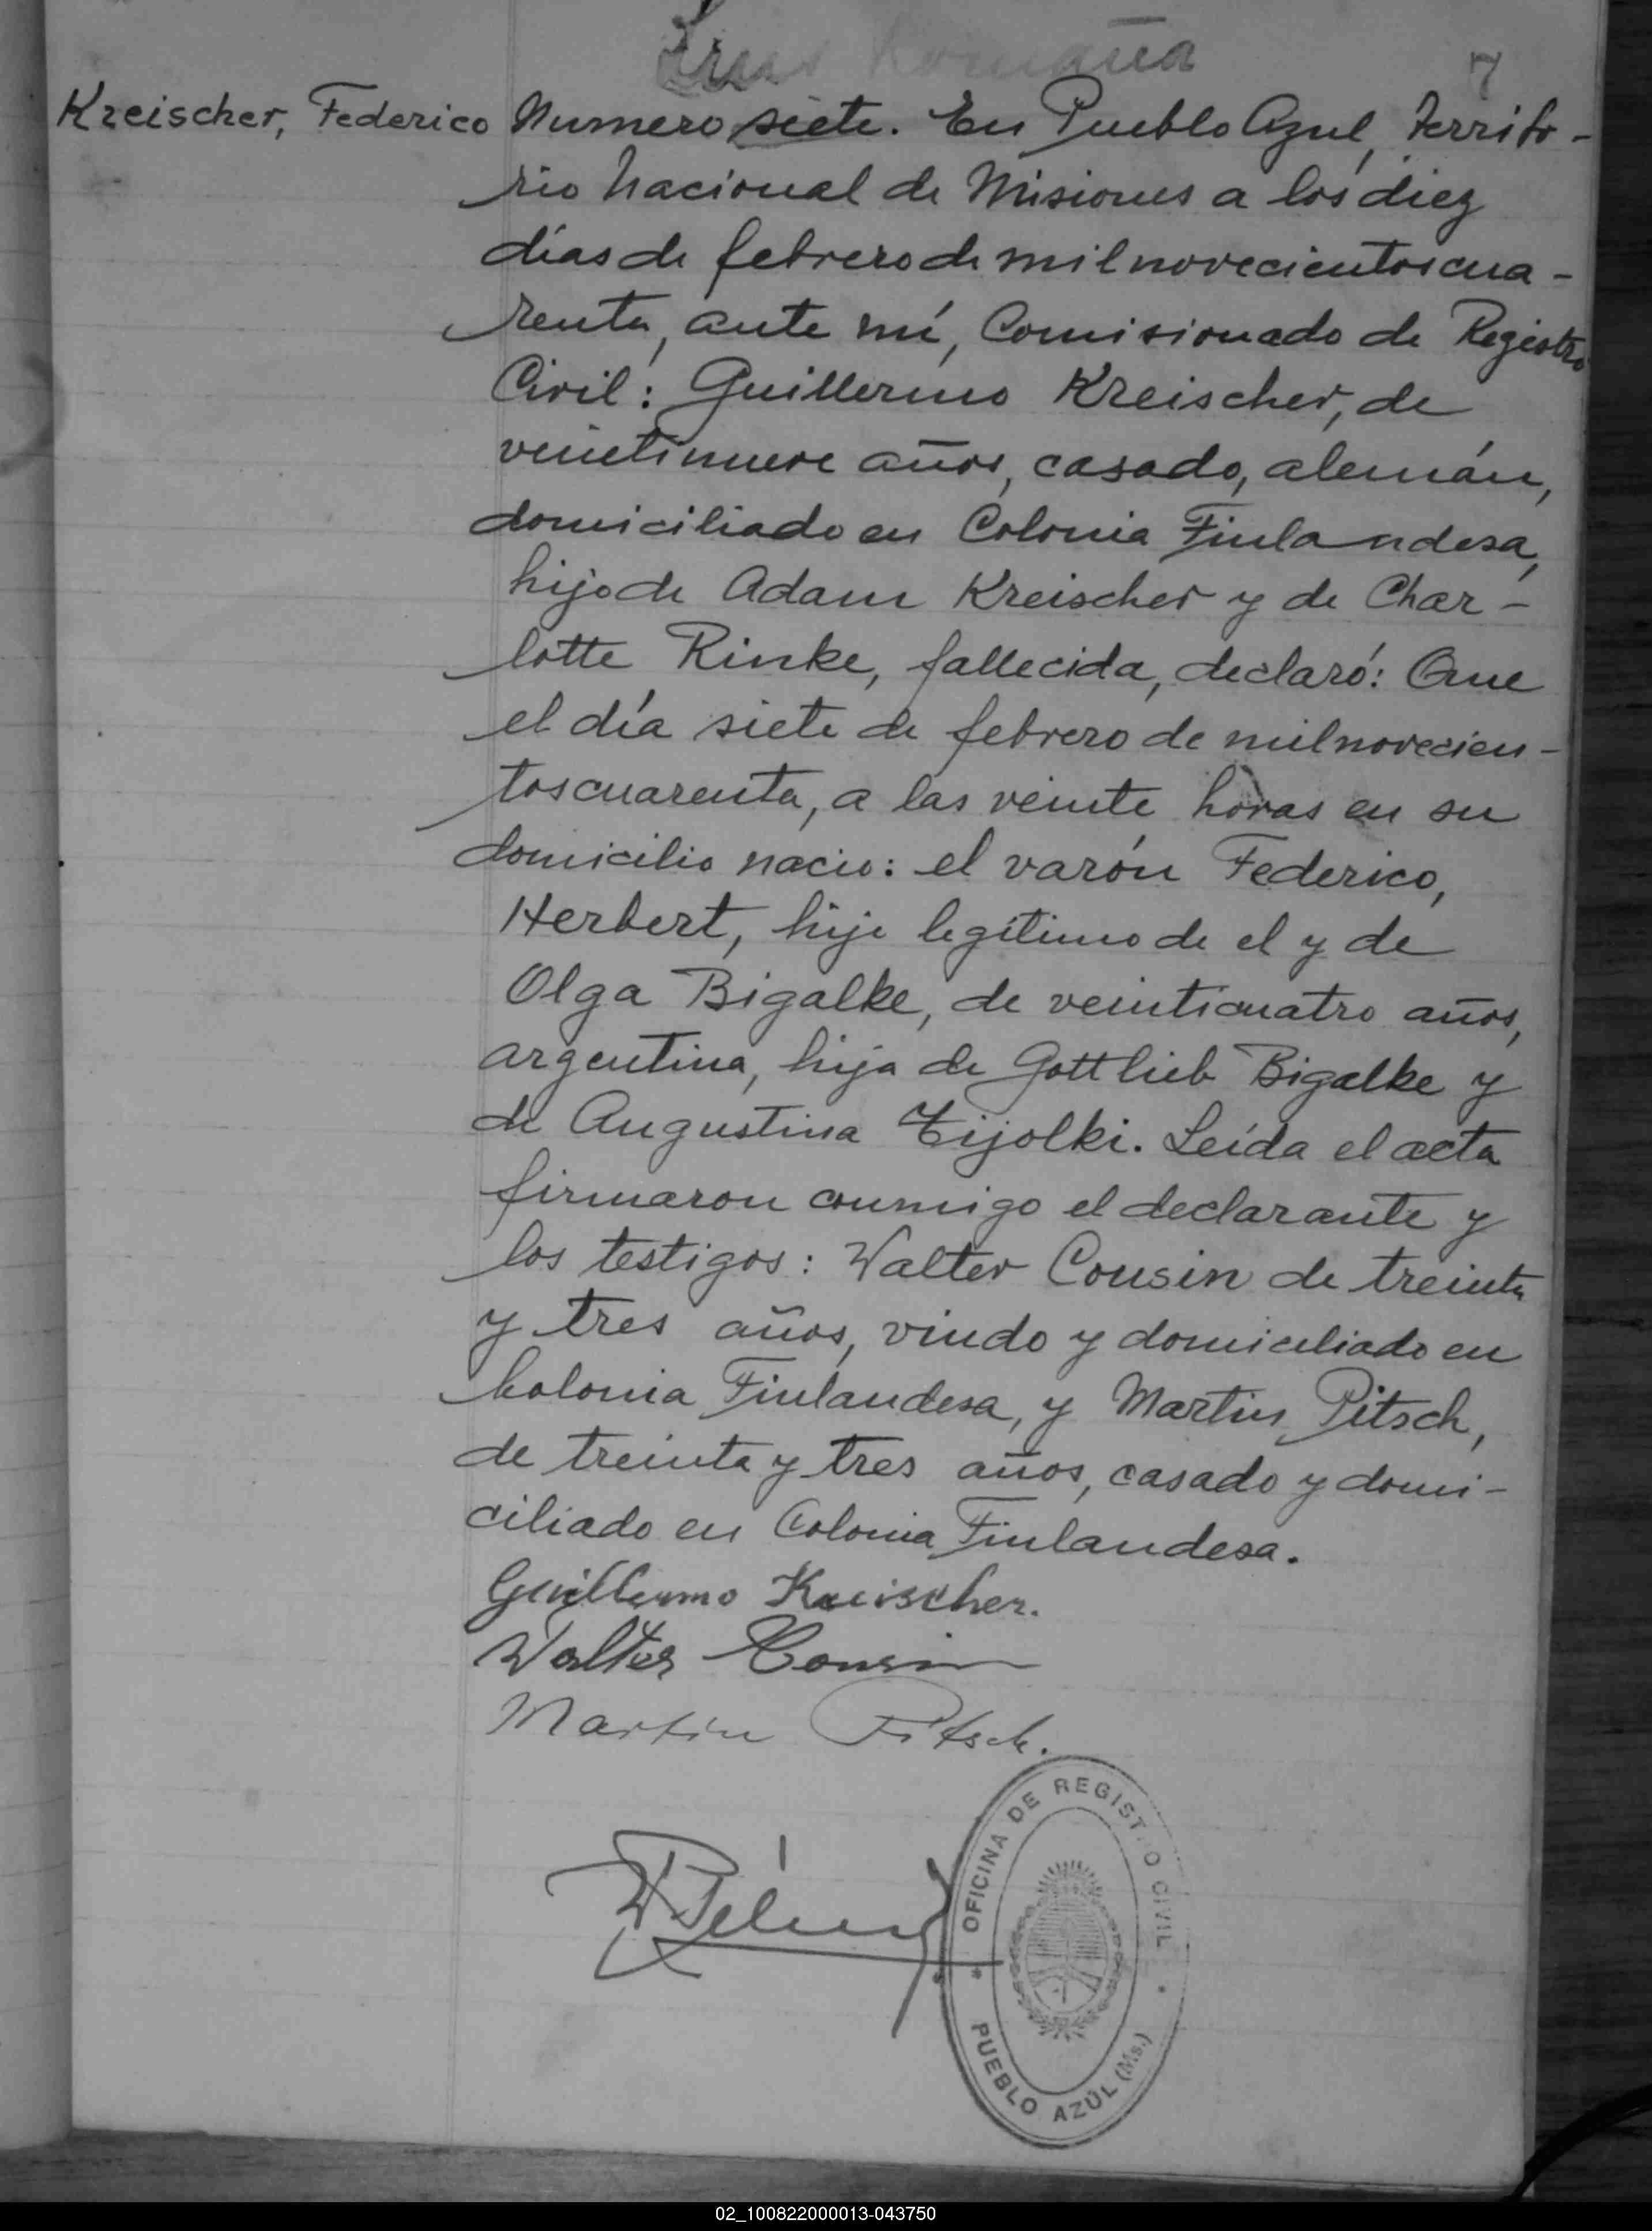 7
Kreischer, Federico
Numero siete. En Pueblo Azul, Territo-
rio Nacional de Misiones a los diez
días de febrero de mil novecientos cua-
renta, ante mí, Comisionado de Registro
Civil: Guillermo Kreischer, de
veintinueve años, casado, alemán,
domiciliado en Colonia Finlandesa,
hijo de Adam Kreischer y de Char-
lotte Rinke, fallecida, declaró: Que
el día siete de febrero de mil novecien-
tos cuarenta, a las veinte horas en su
domicilio nacio: el varón Federico,
Herbert, hijo legítimo de el y de
Olga Bigalke, de veinticuatro años,
argentina, hija de Gottlieb Bigalke y
de Augustina Tijolki. Leída el acta
firmaron conmigo el declarante y
los testigos: Walter Cousin de treinta
y tres años, viudo y domiciliado en
Colonia Finlandesa, y Martin Pitsch,
de treinta y tres años, casado y domi-
ciliado en Colonia Finlandesa.
Guillermo Kreischer.
Walter Cousin
Martin Pitsch.
OFICINA DE REGISTRO CIVIL
PUEBLO AZUL (Ms.)
02_100822000013-043750